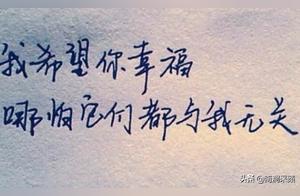 我希望你幸福
哪怕它们都与我无关
头条